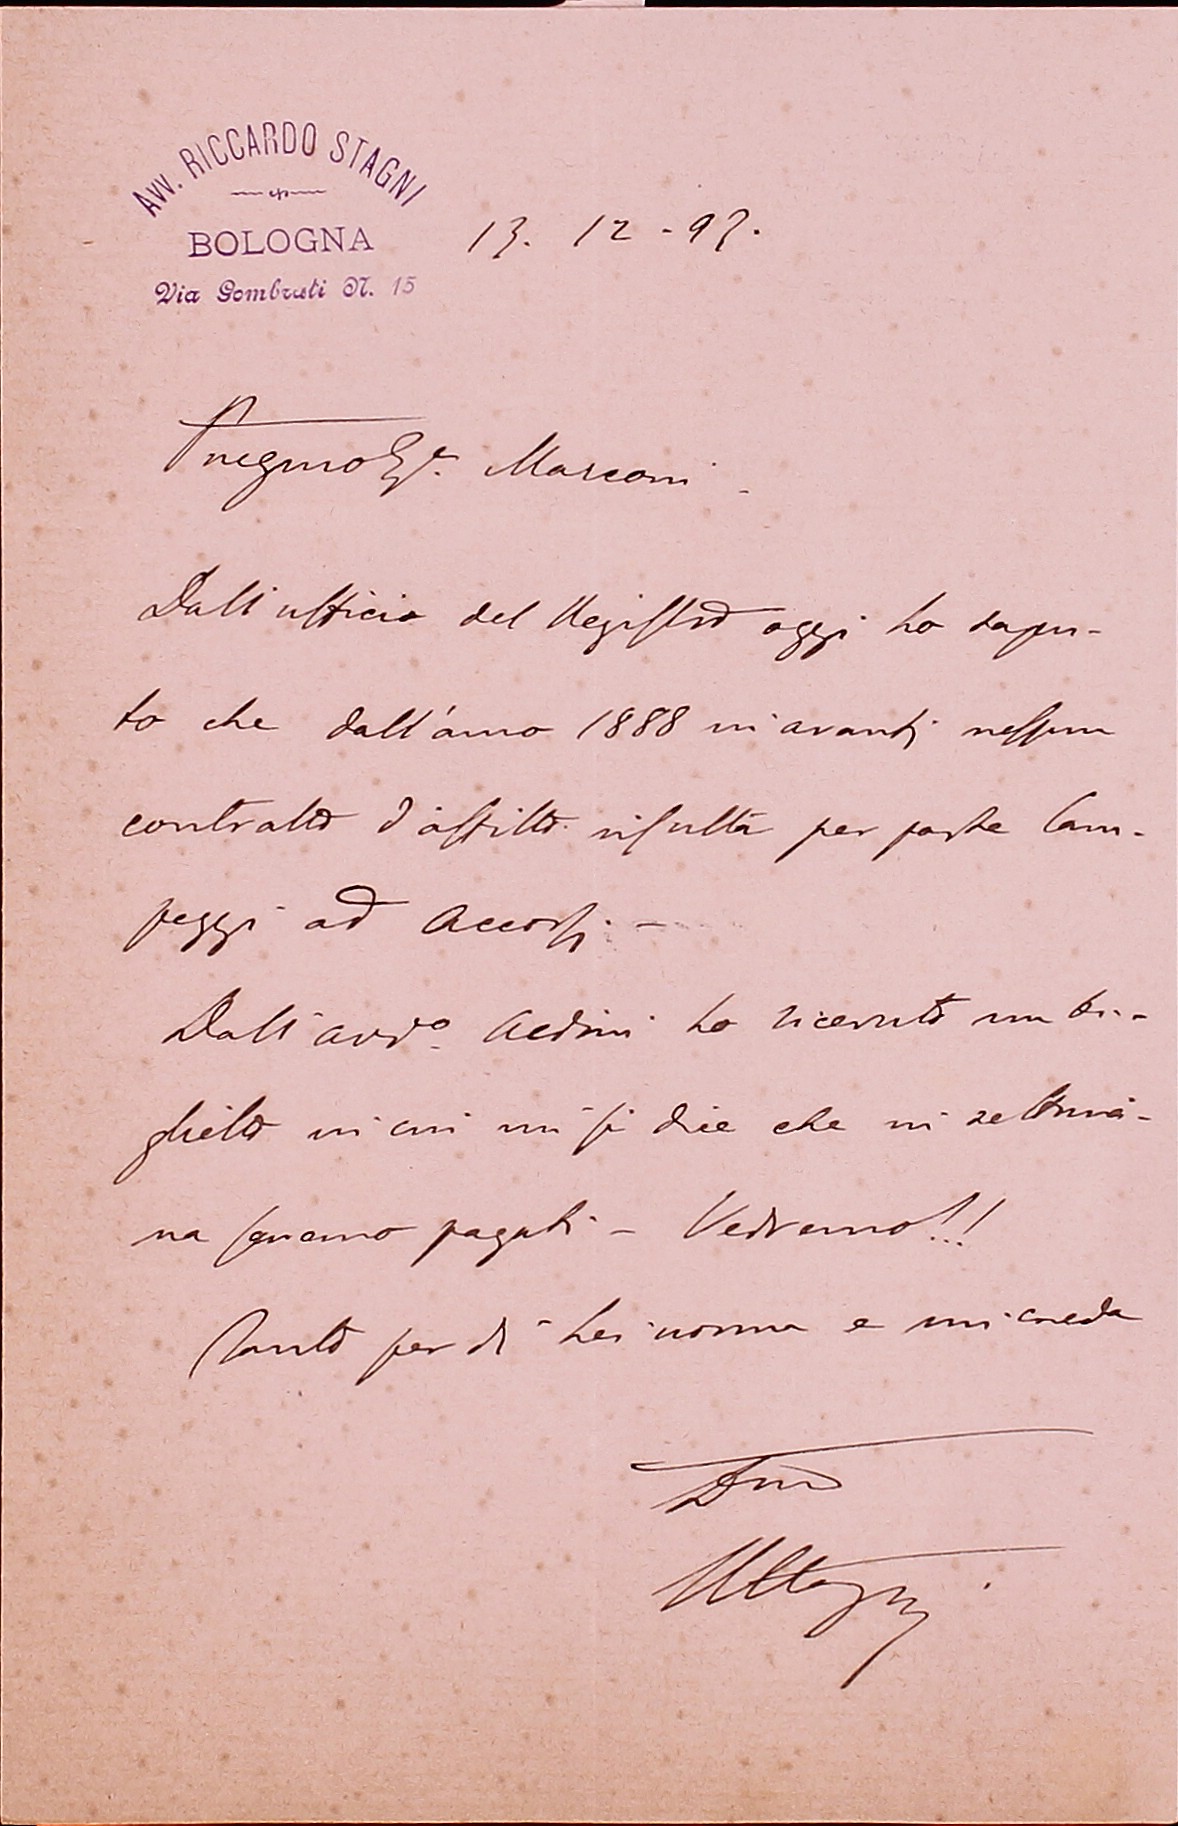 Avv. RICCARDO STAGNI
BOLOGNA
Via Gombruti N. 15
13. 12 - 97.
Pregmo Sr. Marconi
Dall'ufficio del Registro oggi ho sapu-
to che dall'anno 1888 in avanti nessun
contratto d'affitto risulta per parte Cam-
peggi ad Accorsi. -
Dall'avvo. Aldini ho ricevuto un bi-
glietto in cui mi si dice che in settima-
na saremo pagati - Vedremo!!!
Tanto per di Lei norma e mi creda
Dmo
RStagni